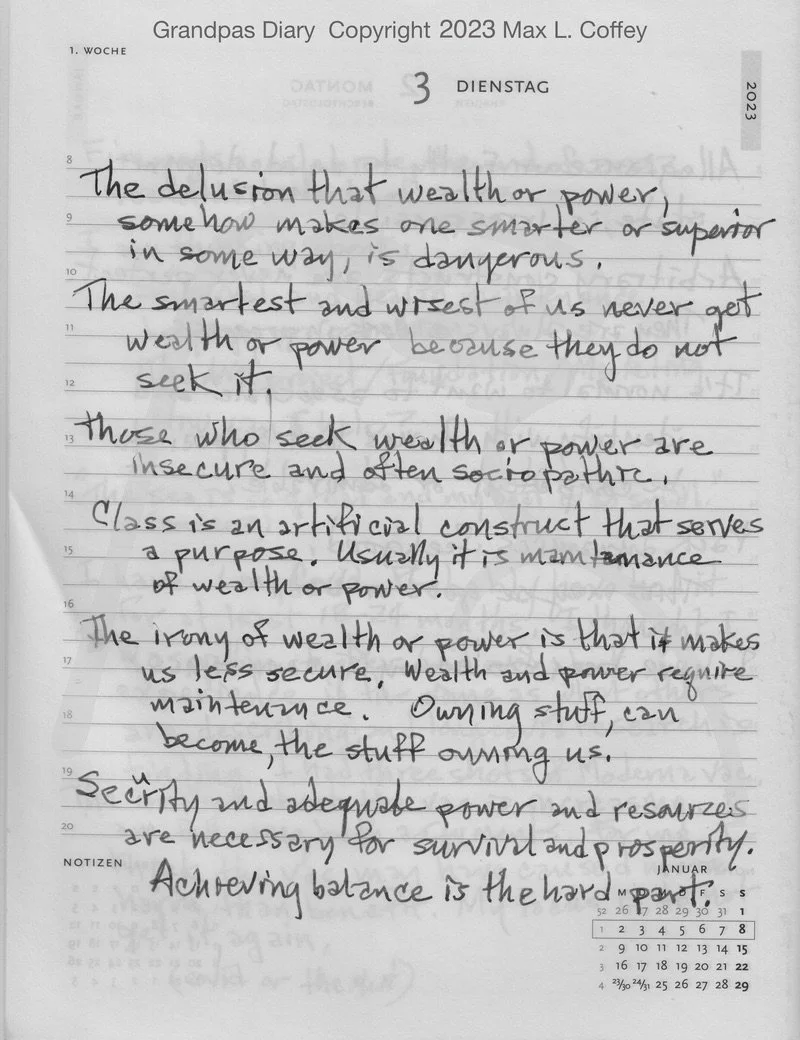 Grandpas Diary Copyright 2023 Max L. Coffey
1. WOCHE
3 DIENSTAG
2023
8
The delusion that wealth or power,
9
somehow makes one smarter or superior
in some way, is dangerous.
10
The smartest and wisest of us never get
11
wealth or power because they do not
12
seek it.
13
Those who seek wealth or power are
insecure and often sociopathic.
14
Class is an artificial construct that serves
15
a purpose. Usually it is maintanance
of wealth or power.
16
The irony of wealth or power is that it makes
17
us less secure. Wealth and power require
maintenance. Owning stuff, can
18
become, the stuff owning us.
19
Security and adequate power and resources
20
are necessary for survival and prosperity.
NOTIZEN
Achieving balance is the hard part.
JANUAR
M F S S
52 26 27 28 29 30 31 1
1 2 3 4 5 6 7 8
2 9 10 11 12 13 14 15
3 16 17 18 19 20 21 22
4 23/30 24/31 25 26 27 28 29